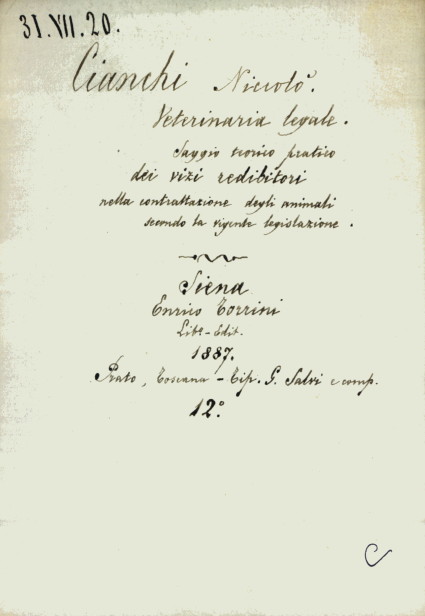 31.VII.20.
Cianchi Niccolò.
Veterinaria legale.
Saggio teorico pratico
dei vizi redibitori
nella contrattazione degli animali
secondo la vigente legislazione.
Siena
Enrico Torrini
Libr-Edit.
1887.
Prato, Toscana - Tip. G. Salvi e comp.
12°
C